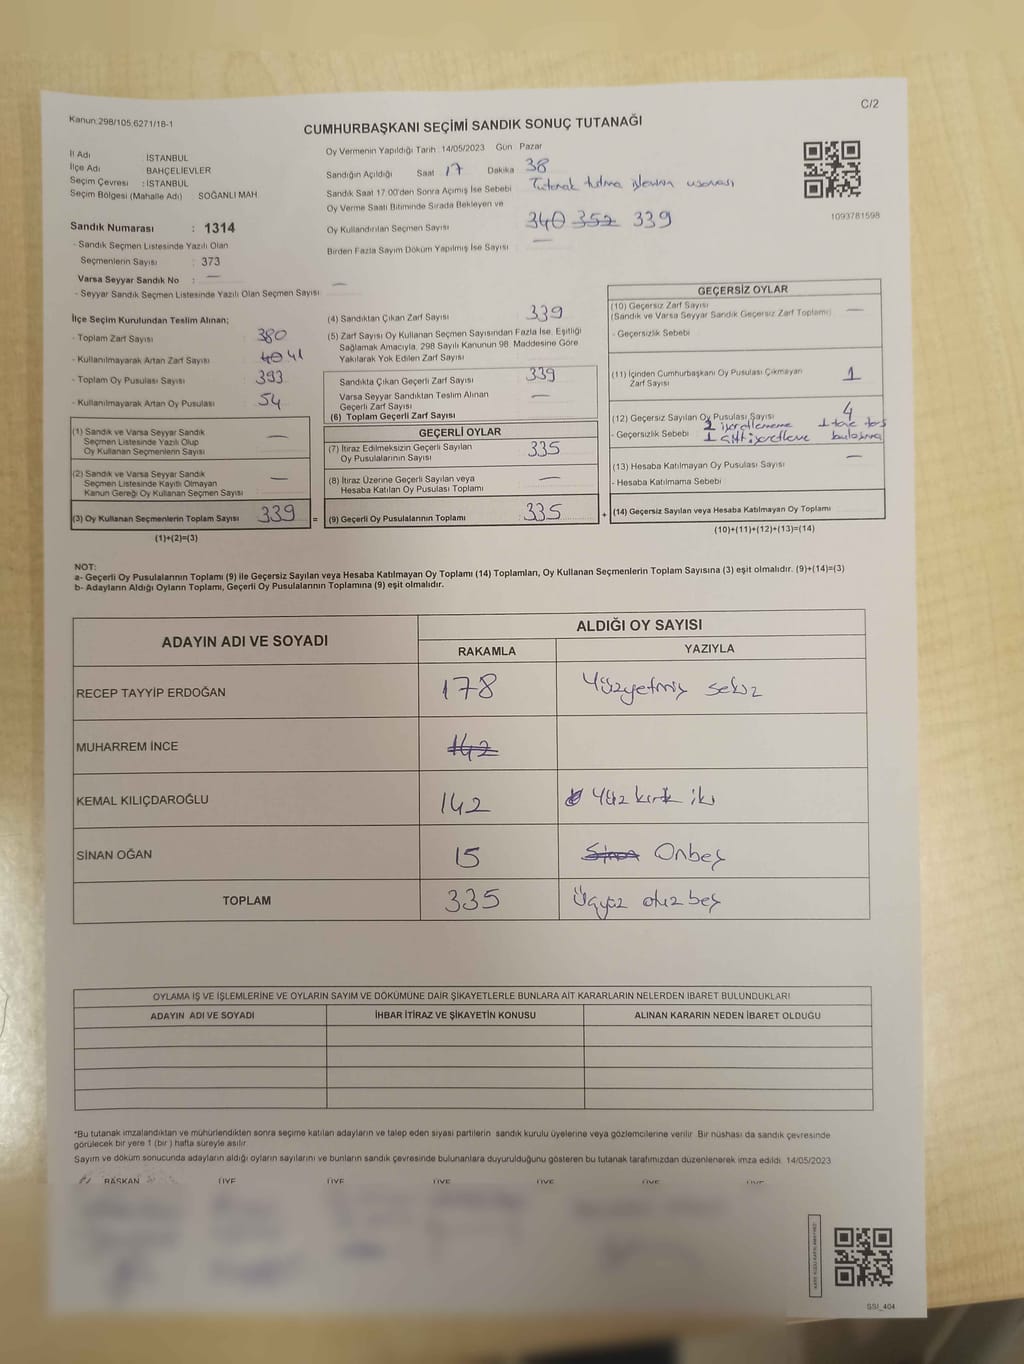 Kanun:298/105,6271/18-1
C/2
CUMHURBAŞKANI SEÇİMİ SANDIK SONUÇ TUTANAĞI
İl Adı İSTANBUL
İlçe Adı BAHÇELİEVLER
Seçim Çevresi : İSTANBUL
Seçim Bölgesi (Mahalle Adı) SOĞANLI MAH
Sandık Numarası : 1314
- Sandık Seçmen Listesinde Yazılı Olan
Seçmenlerin Sayısı : 373
Varsa Seyyar Sandık No : —
- Seyyar Sandık Seçmen Listesinde Yazılı Olan Seçmen Sayısı —
Oy Vermenin Yapıldığı Tarih 14/05/2023 Gün Pazar
Sandığın Açıldığı Saat 17 Dakika 38
Sandık Saat 17.00'den Sonra Açımış İse Sebebi Tutanak tutma
Oy Verme Saati Bitiminde Sırada Bekleyen ve
Oy Kullandırılan Seçmen Sayısı 340 352 339
Birden Fazla Sayım Döküm Yapılmış İse Sayısı —
1093781598
İlçe Seçim Kurulundan Teslim Alınan;
- Toplam Zarf Sayısı 380
- Kullanılmayarak Artan Zarf Sayısı 40 41
- Toplam Oy Pusulası Sayısı 393
- Kullanılmayarak Artan Oy Pusulası 54
(1) Sandık ve Varsa Seyyar Sandık
Seçmen Listesinde Yazılı Olup
Oy Kullanan Seçmenlerin Sayısı —
(2) Sandık ve Varsa Seyyar Sandık
Seçmen Listesinde Kayıtlı Olmayan
Kanun Gereği Oy Kullanan Seçmen Sayısı —
(3) Oy Kullanan Seçmenlerin Toplam Sayısı 339 =
(1)+(2)=(3)
(4) Sandıktan Çıkan Zarf Sayısı 339
(5) Zarf Sayısı Oy Kullanan Seçmen Sayısından Fazla İse, Eşitliği
Sağlamak Amacıyla, 298 Sayılı Kanunun 98. Maddesine Göre
Yakılarak Yok Edilen Zarf Sayısı
Sandıkta Çıkan Geçerli Zarf Sayısı 339
Varsa Seyyar Sandıktan Teslim Alınan
Geçerli Zarf Sayısı —
(6) Toplam Geçerli Zarf Sayısı
GEÇERLİ OYLAR
(7) İtiraz Edilmeksizin Geçerli Sayılan
Oy Pusulalarının Sayısı 335
(8) İtiraz Üzerine Geçerli Sayılan veya
Hesaba Katılan Oy Pusulası Toplamı —
(9) Geçerli Oy Pusulalarının Toplamı 335 +
GEÇERSİZ OYLAR
(10) Geçersiz Zarf Sayısı
(Sandık ve Varsa Seyyar Sandık Geçersiz Zarf Toplamı) —
- Geçersizlik Sebebi
(11) İçinden Cumhurbaşkanı Oy Pusulası Çıkmayan
Zarf Sayısı 1
(12) Geçersiz Sayılan Oy Pusulası Sayısı 4
- Geçersizlik Sebebi
(13) Hesaba Katılmayan Oy Pusulası Sayısı —
- Hesaba Katılmama Sebebi
(14) Geçersiz Sayılan veya Hesaba Katılmayan Oy Toplamı
(10)+(11)+(12)+(13)=(14)
NOT:
a- Geçerli Oy Pusulalarının Toplamı (9) ile Geçersiz Sayılan veya Hesaba Katılmayan Oy Toplamı (14) Toplamları, Oy Kullanan Seçmenlerin Toplam Sayısına (3) eşit olmalıdır. (9)+(14)=(3)
b- Adayların Aldığı Oyların Toplamı, Geçerli Oy Pusulalarının Toplamına (9) eşit olmalıdır.
ADAYIN ADI VE SOYADI
ALDIĞI OY SAYISI
RAKAMLA YAZIYLA
RECEP TAYYİP ERDOĞAN 178 Yüzyetmiş sekiz
MUHARREM İNCE 142
KEMAL KILIÇDAROĞLU 142 Yüz kırk iki
SİNAN OĞAN 15 Sinan Onbeş
TOPLAM 335 Üçyüz otuz beş
OYLAMA İŞ VE İŞLEMLERİNE VE OYLARIN SAYIM VE DÖKÜMÜNE DAİR ŞİKAYETLERLE BUNLARA AİT KARARLARIN NELERDEN İBARET BULUNDUKLARI
ADAYIN ADI VE SOYADI İHBAR İTİRAZ VE ŞİKAYETİN KONUSU ALINAN KARARIN NEDEN İBARET OLDUĞU
*Bu tutanak imzalandıktan ve mühürlendikten sonra seçime katılan adayların ve talep eden siyasi partilerin sandık kurulu üyelerine veya gözlemcilerine verilir. Bir nüshası da sandık çevresinde
görülecek bir yere 1 (bir ) hafta süreyle asılır.
Sayım ve döküm sonucunda adayların aldığı oyların sayılarını ve bunların sandık çevresinde bulunanlara duyurulduğunu gösteren bu tutanak tarafımızdan düzenlenerek imza edildi. 14/05/2023
BAŞKAN ÜYE ÜYE ÜYE ÜYE ÜYE ÜYE
SSI_404